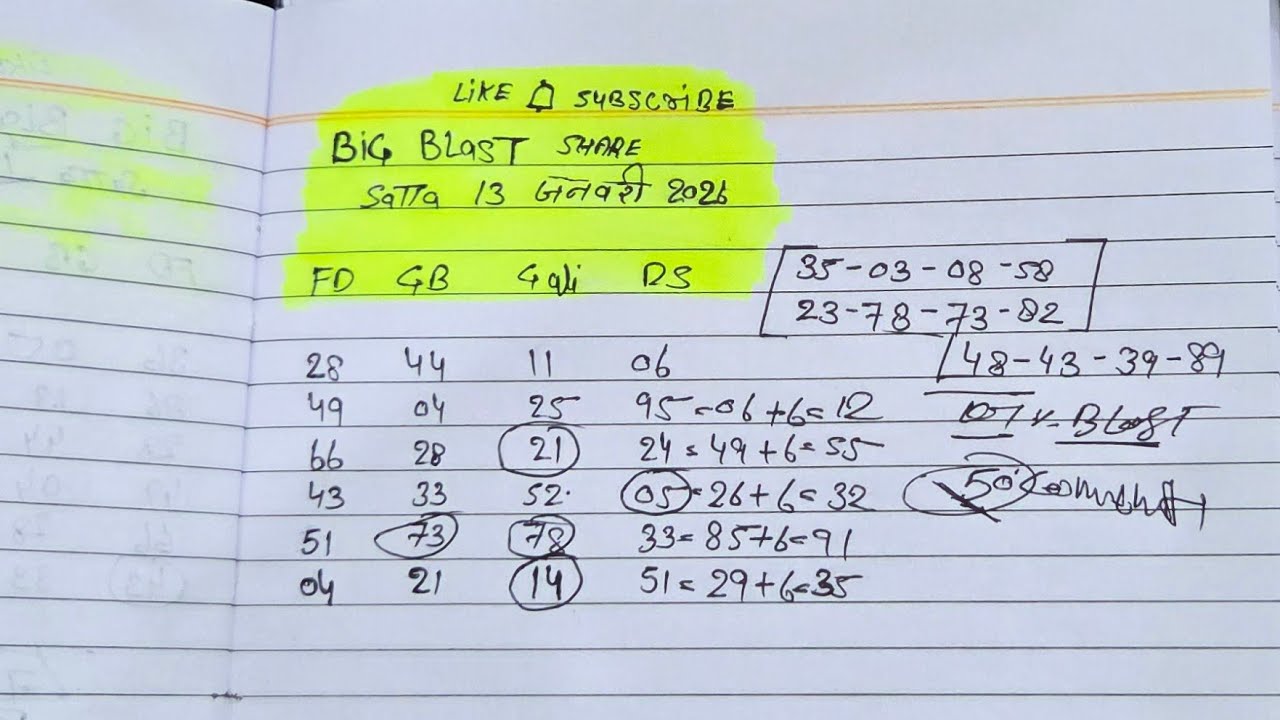 LIKE SUBSCRIBE
BIG BLAST SHARE
SATTA 13 जनवरी 2026
FD GB Gali DS
35-03-08-58
23-78-73-82
28 44 11 06
48-43-39-89
49 04 25 95=06+6=12
BLAST
66 28 21 24=49+6=55
43 33 52. 05=26+6=32
50 Comment
51 73 78 33=85+6=91
04 21 14 51=29+6=35